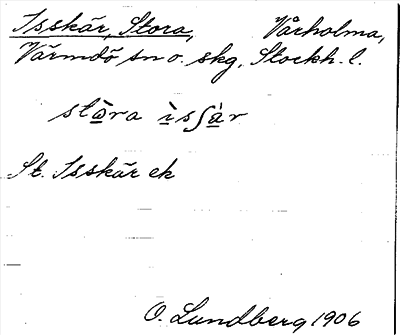 Isskär, Stora, Vårholma,
Värmdö sn o. skg, Stockh. l.
stⱥ̀ra ìsʃär
St. Isskär ek
O. Lundberg 1906